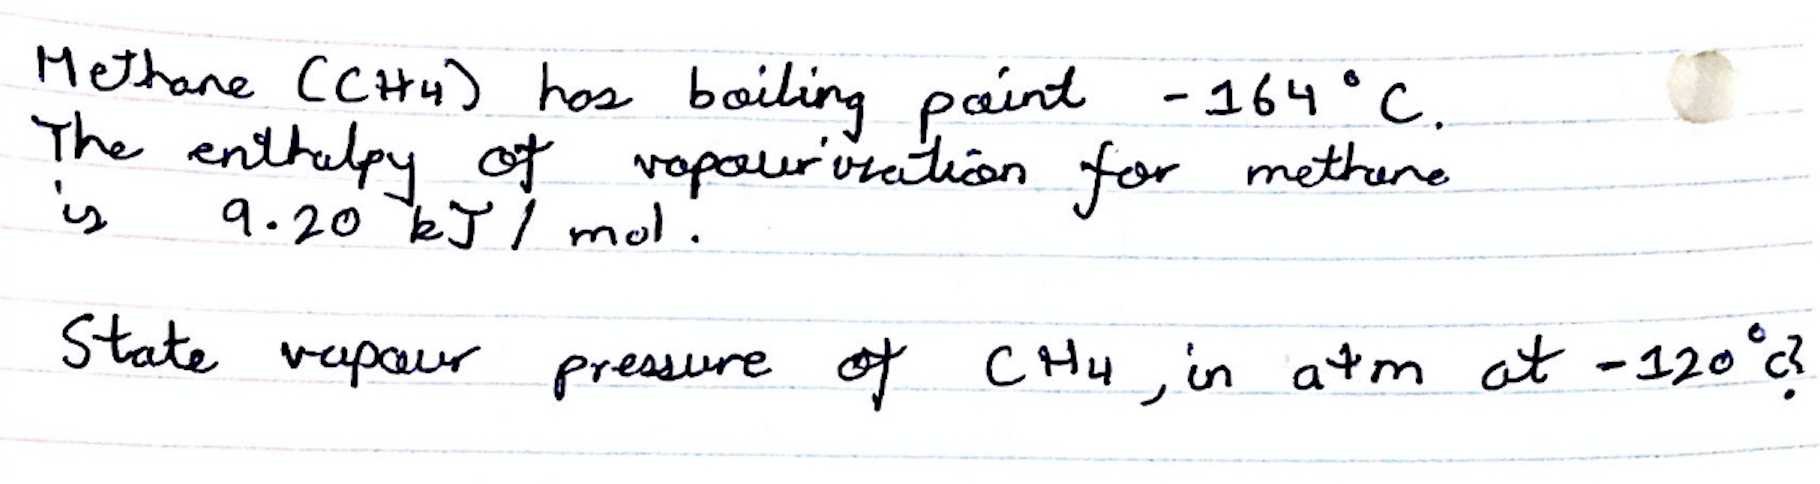 Methane (CH4) has boiling point -164°C.
The enthalpy of vapourization for methane
is 9.20 kJ/mol.
State vapour pressure of CH4, in atm at -120°C?